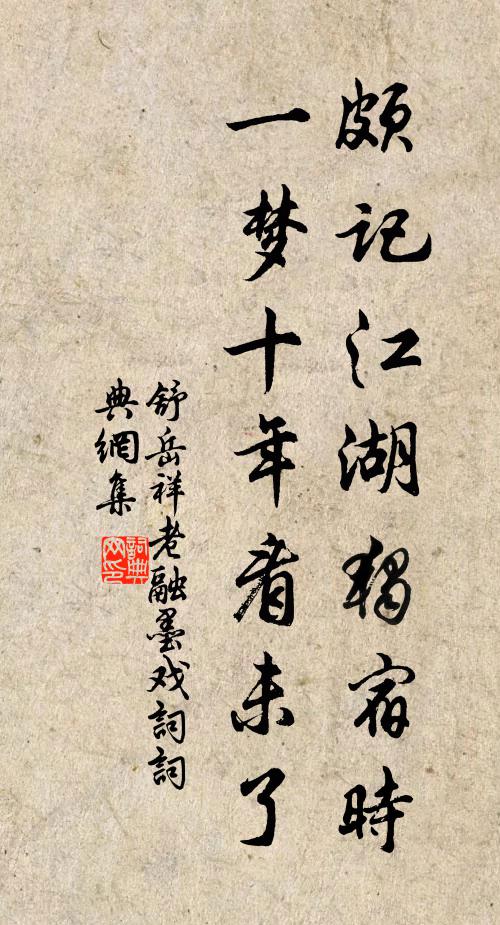 頗记江湖獨宿時
一梦十年看未了
舒岳祥老融墨戏詞詞
典網集
詞典
网印